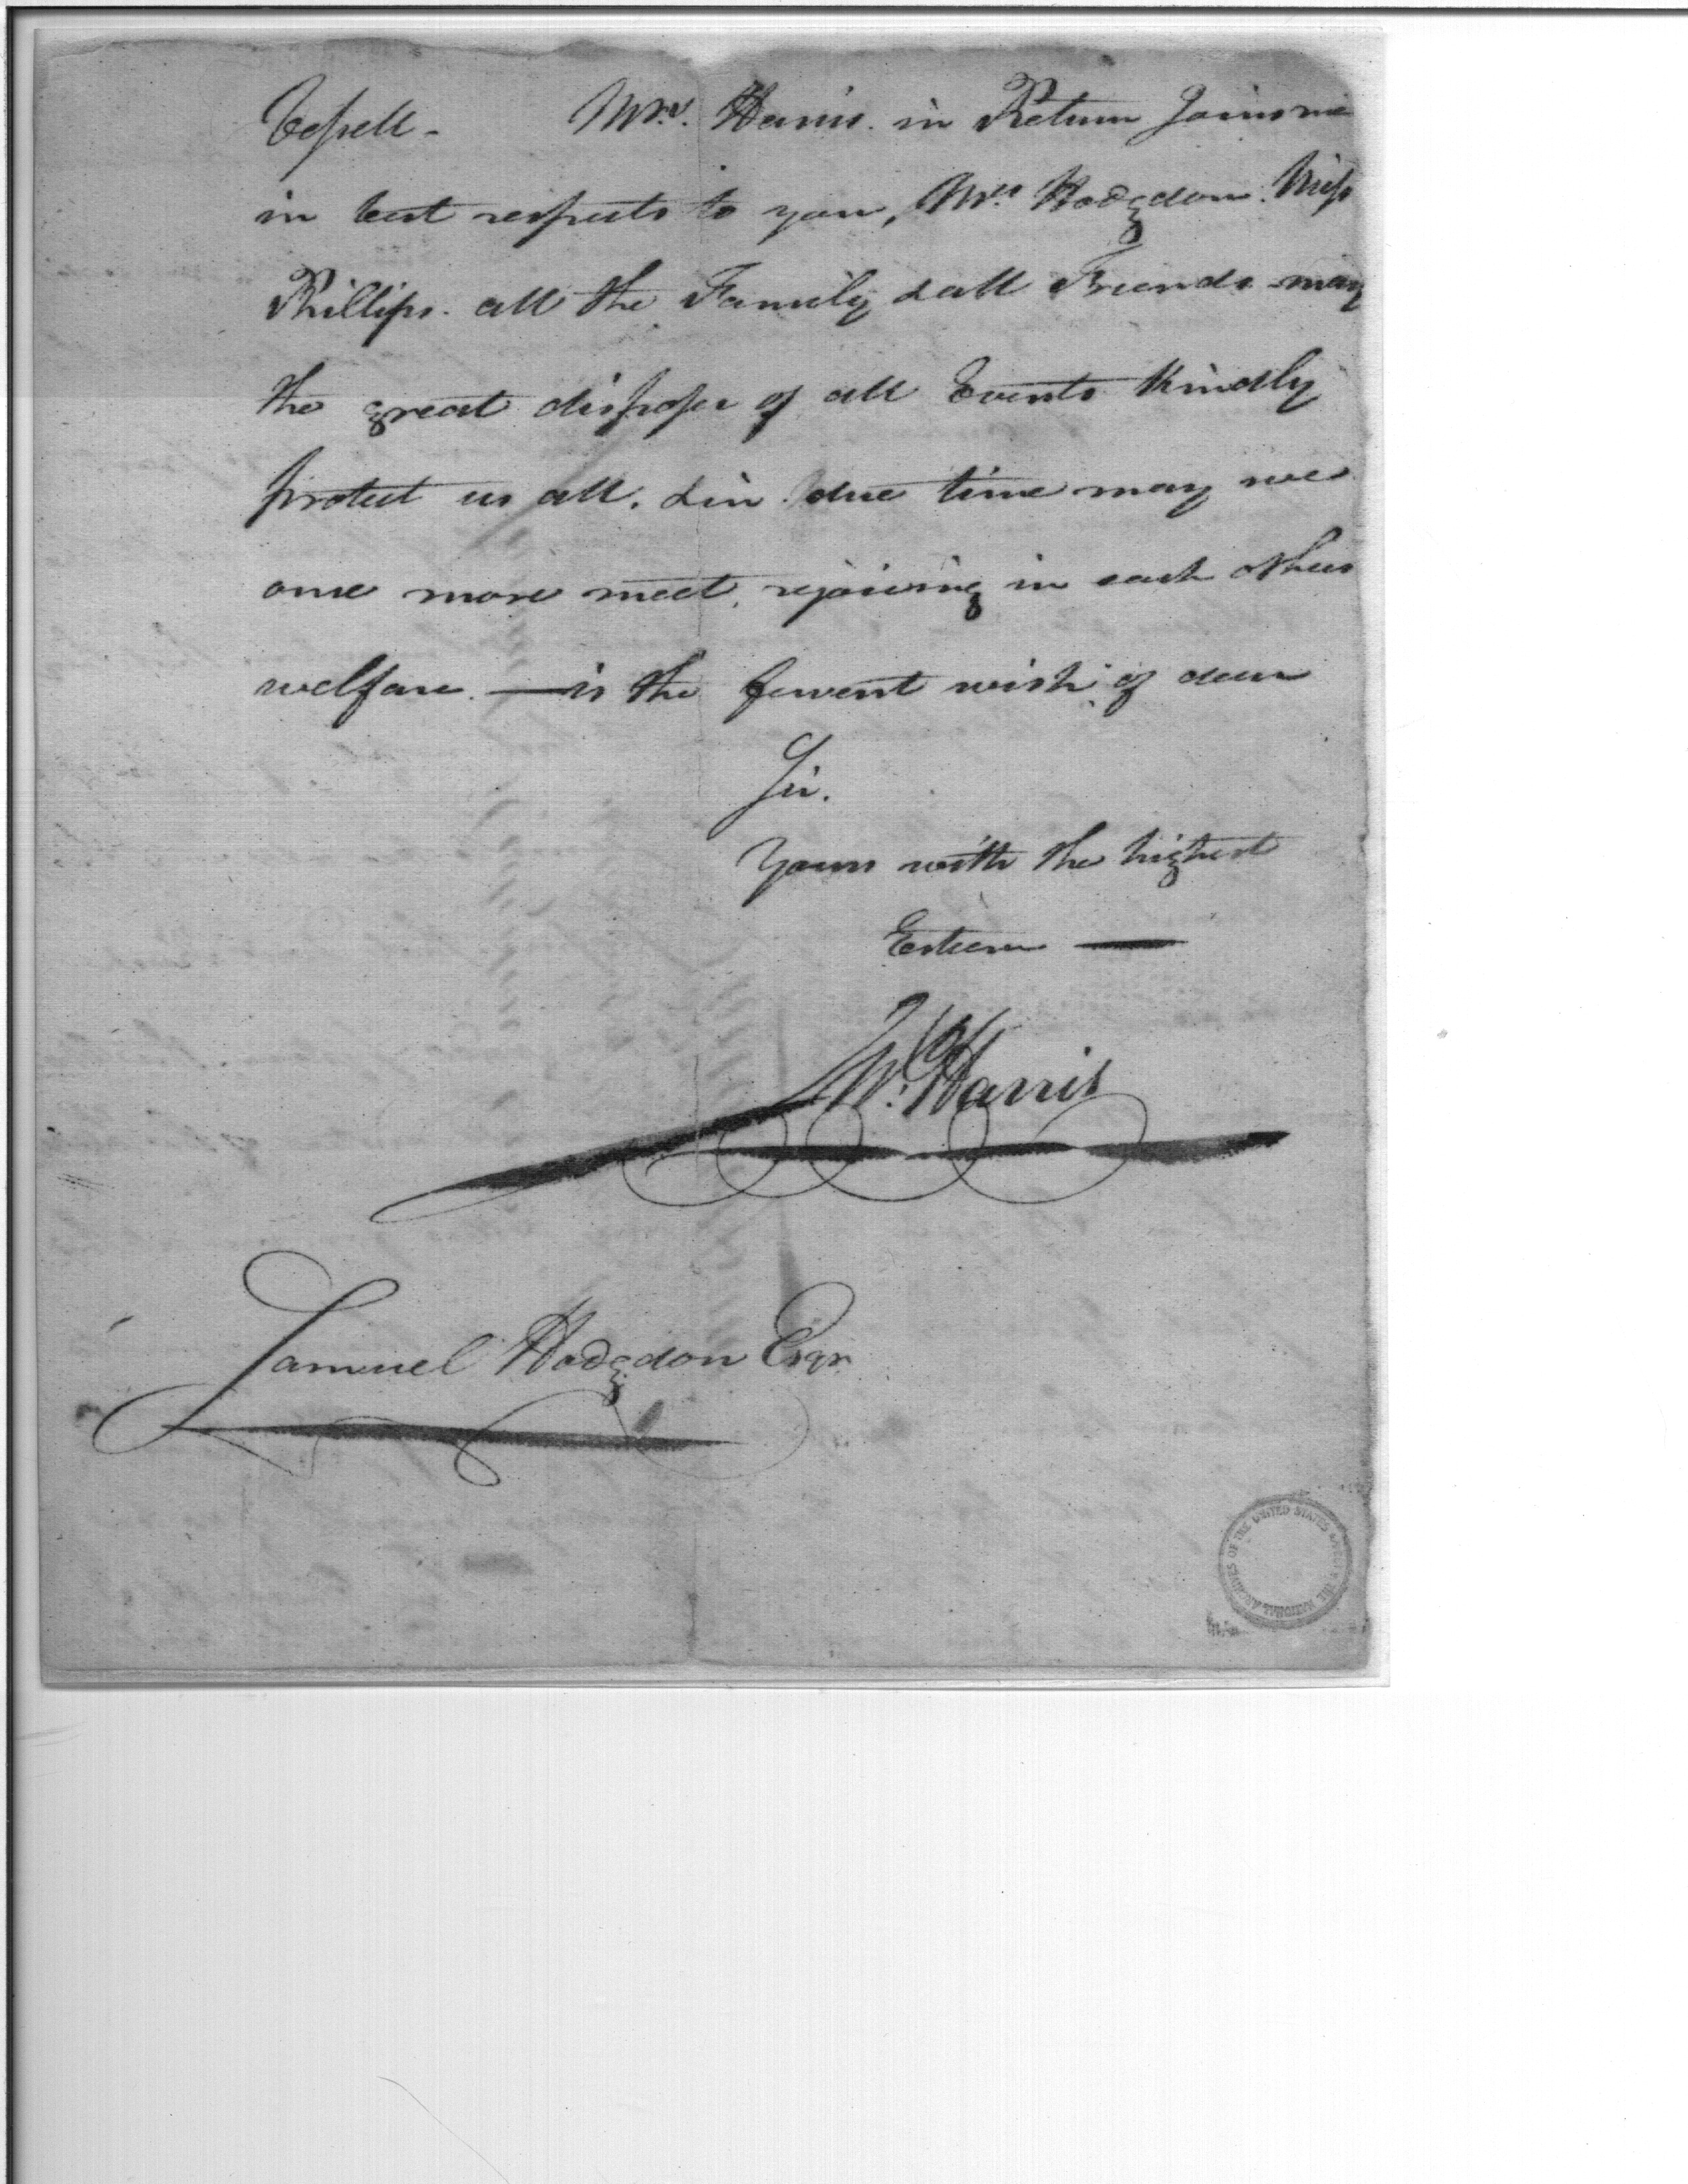 Mrs. Harris. in Return Joins me
in best respects to you, Mrs. Hodgdon. Miss
Phillips. all the Family & all Friends may
the great disposer of all Events kindly
protect us all. & in due time may we
once more meet, rejoicing in each others
welfare. — is the fervent wish of dear
Sir.
Yours with the highest
Esteem —
Wm. Harris
Samuel Hodgdon Esqr
ARCHIVES OF THE UNITED STATES
THE NATIONAL